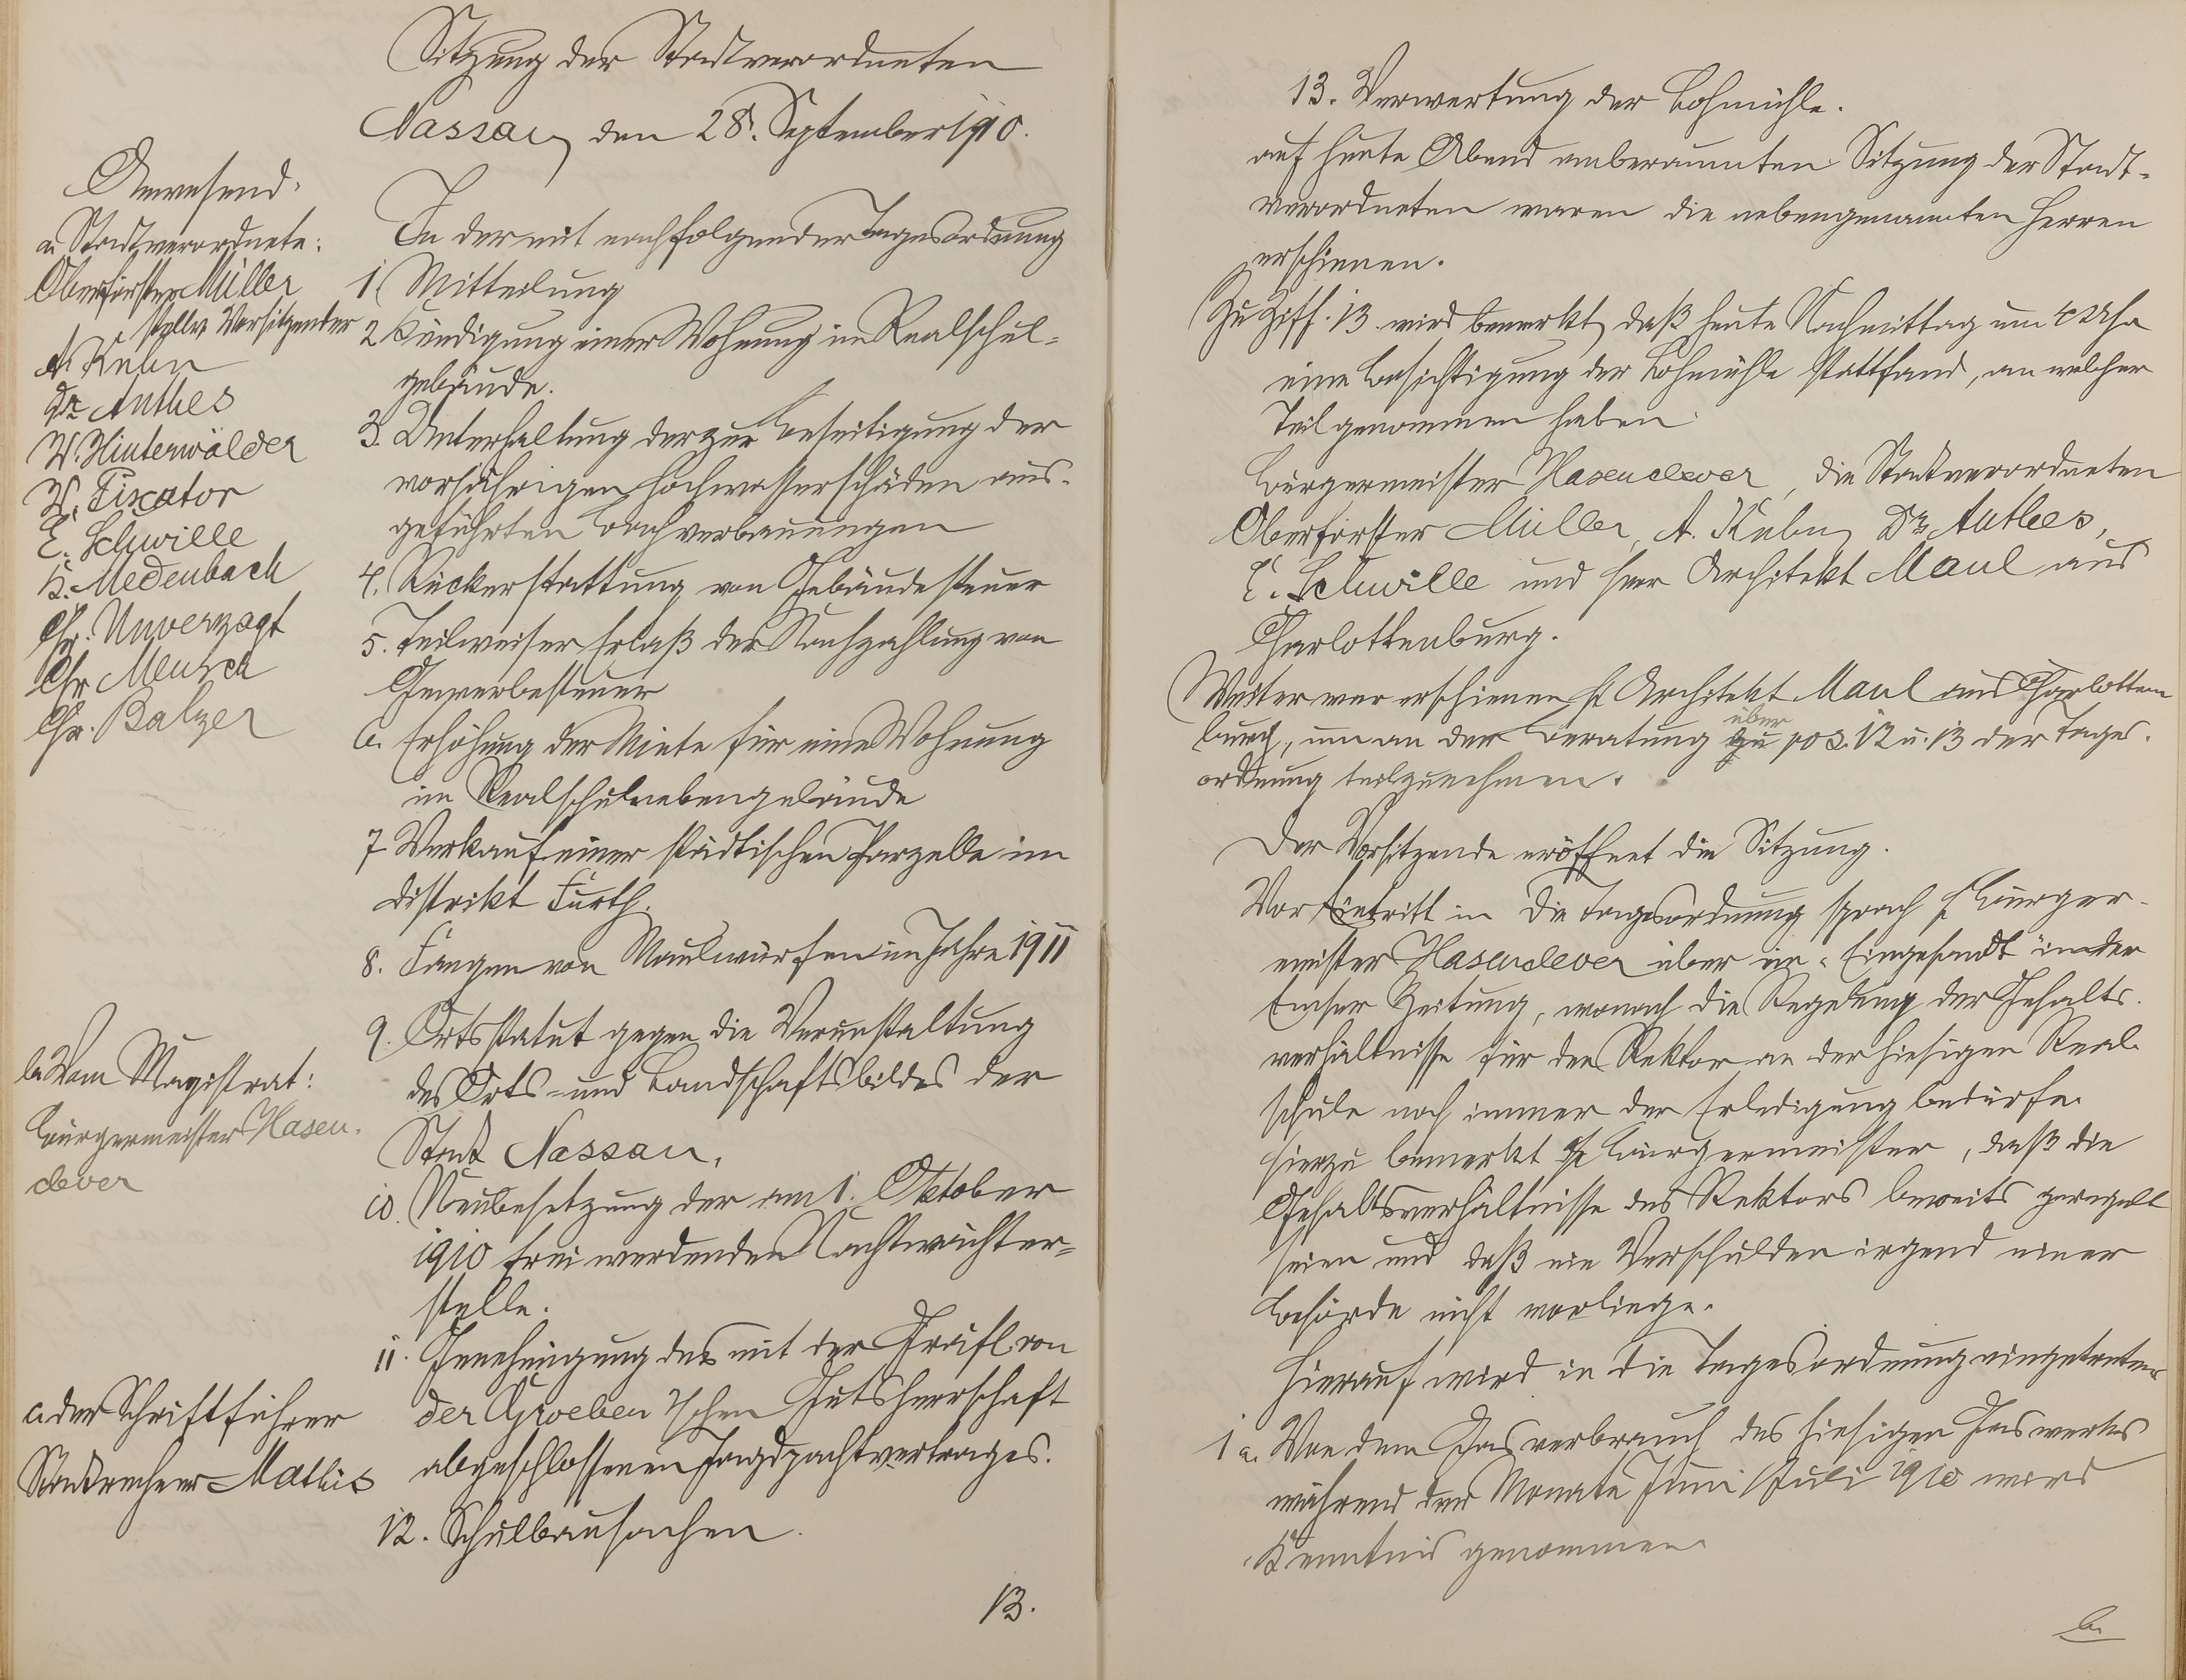 Sitzung der Stadtverordneten
Nassau, den 28. September 1910.
Anwesend:
a. Stadtverordnete:
Oberförster Müller
stellv. Vorsitzender
A. Kuhn
Dr. Anthes
W. Hinterwälder
W. Piscator
E. Schwille
K. Medenbach
Chr. Unverzagt
Chr. Meusch
Chr. Balzer
b. Vom Magistrat:
Bürgermeister Hasen-
clever
c. der Schriftführer
Stadtrechner Mathis
In der mit nachfolgender Tagesordnung
1. Mitteilung
2. Kündigung einer Wohnung im Realschul-
gebäude.
3. Unterhaltung der zur Beseitigung der
vorjährigen Hochwasserschäden aus-
geführten Bachverbauungen
4. Rückerstattung von Gebäudesteuer
5. Teilweiser Erlaß der Nachzahlung von
Gewerbesteuer
6. Erhöhung der Miete für eine Wohnung
im Realschulnebengebäude
7. Verkauf einer städtischen Parzelle im
Distrikt Furth.
8. Fangen von Maulwürfen im Jahre 1911
9. Ortsstatut gegen die Verunstaltung
des Orts- und Landschaftsbildes der
Stadt Nassau.
10. Neubesetzung der am 1. Oktober
1910 frei werdenden Nachtwächter-
stelle.
11. Genehmigung des mit der Gräfl. von
der Groeben'schen Gutsherrschaft
abgeschlossenen Jagdpachtvertrages.
12. Schulbausachen.
13.
13. Verwertung der Lohmühle.
auf heute Abend anberaumten Sitzung der Stadt-
verordneten waren die nebengenannten Herren
erschienen.
Zu Ziff. 13 wird bemerkt, daß heute Nachmittag um 4 Uhr
eine Besichtigung der Lohmühle stattfand, an welcher
Teil genommen haben:
Bürgermeister Hasenclever, die Stadtverordneten
Oberförster Müller, A. Kuhn, Dr. Anthes,
E. Schwille und Herr Architekt Maul aus
Charlottenburg.
Weiter war erschienen H. Architekt Maul aus Charlotten
burg, um an der Beratung zu über pos. 12 u. 13 der Tages-
ordnung teilzunehmen.
Der Vorsitzende eröffnet die Sitzung.
Vor Eintritt in die Tagesordnung sprach H. Bürger-
meister Hasenclever über ein „Eingesandt" in der
Emser Zeitung, wonach die Regelung der Gehalts-
verhältnisse für den Rektor an der hiesigen Real-
schule noch immer der Erledigung bedürfe.
Hierzu bemerkt H. Bürgermeister, daß die
Gehaltsverhältnisse des Rektors bereits geregelt
seien und daß ein Verschulden irgend einer
Behörde nicht vorliege.
Hierauf wird in die Tagesordnung eingetreten
1 a. Von dem Gasverbrauch des hiesigen Gaswerkes
während der Monate Juni/Juli 1910 wird
Kenntnis genommen.
b.